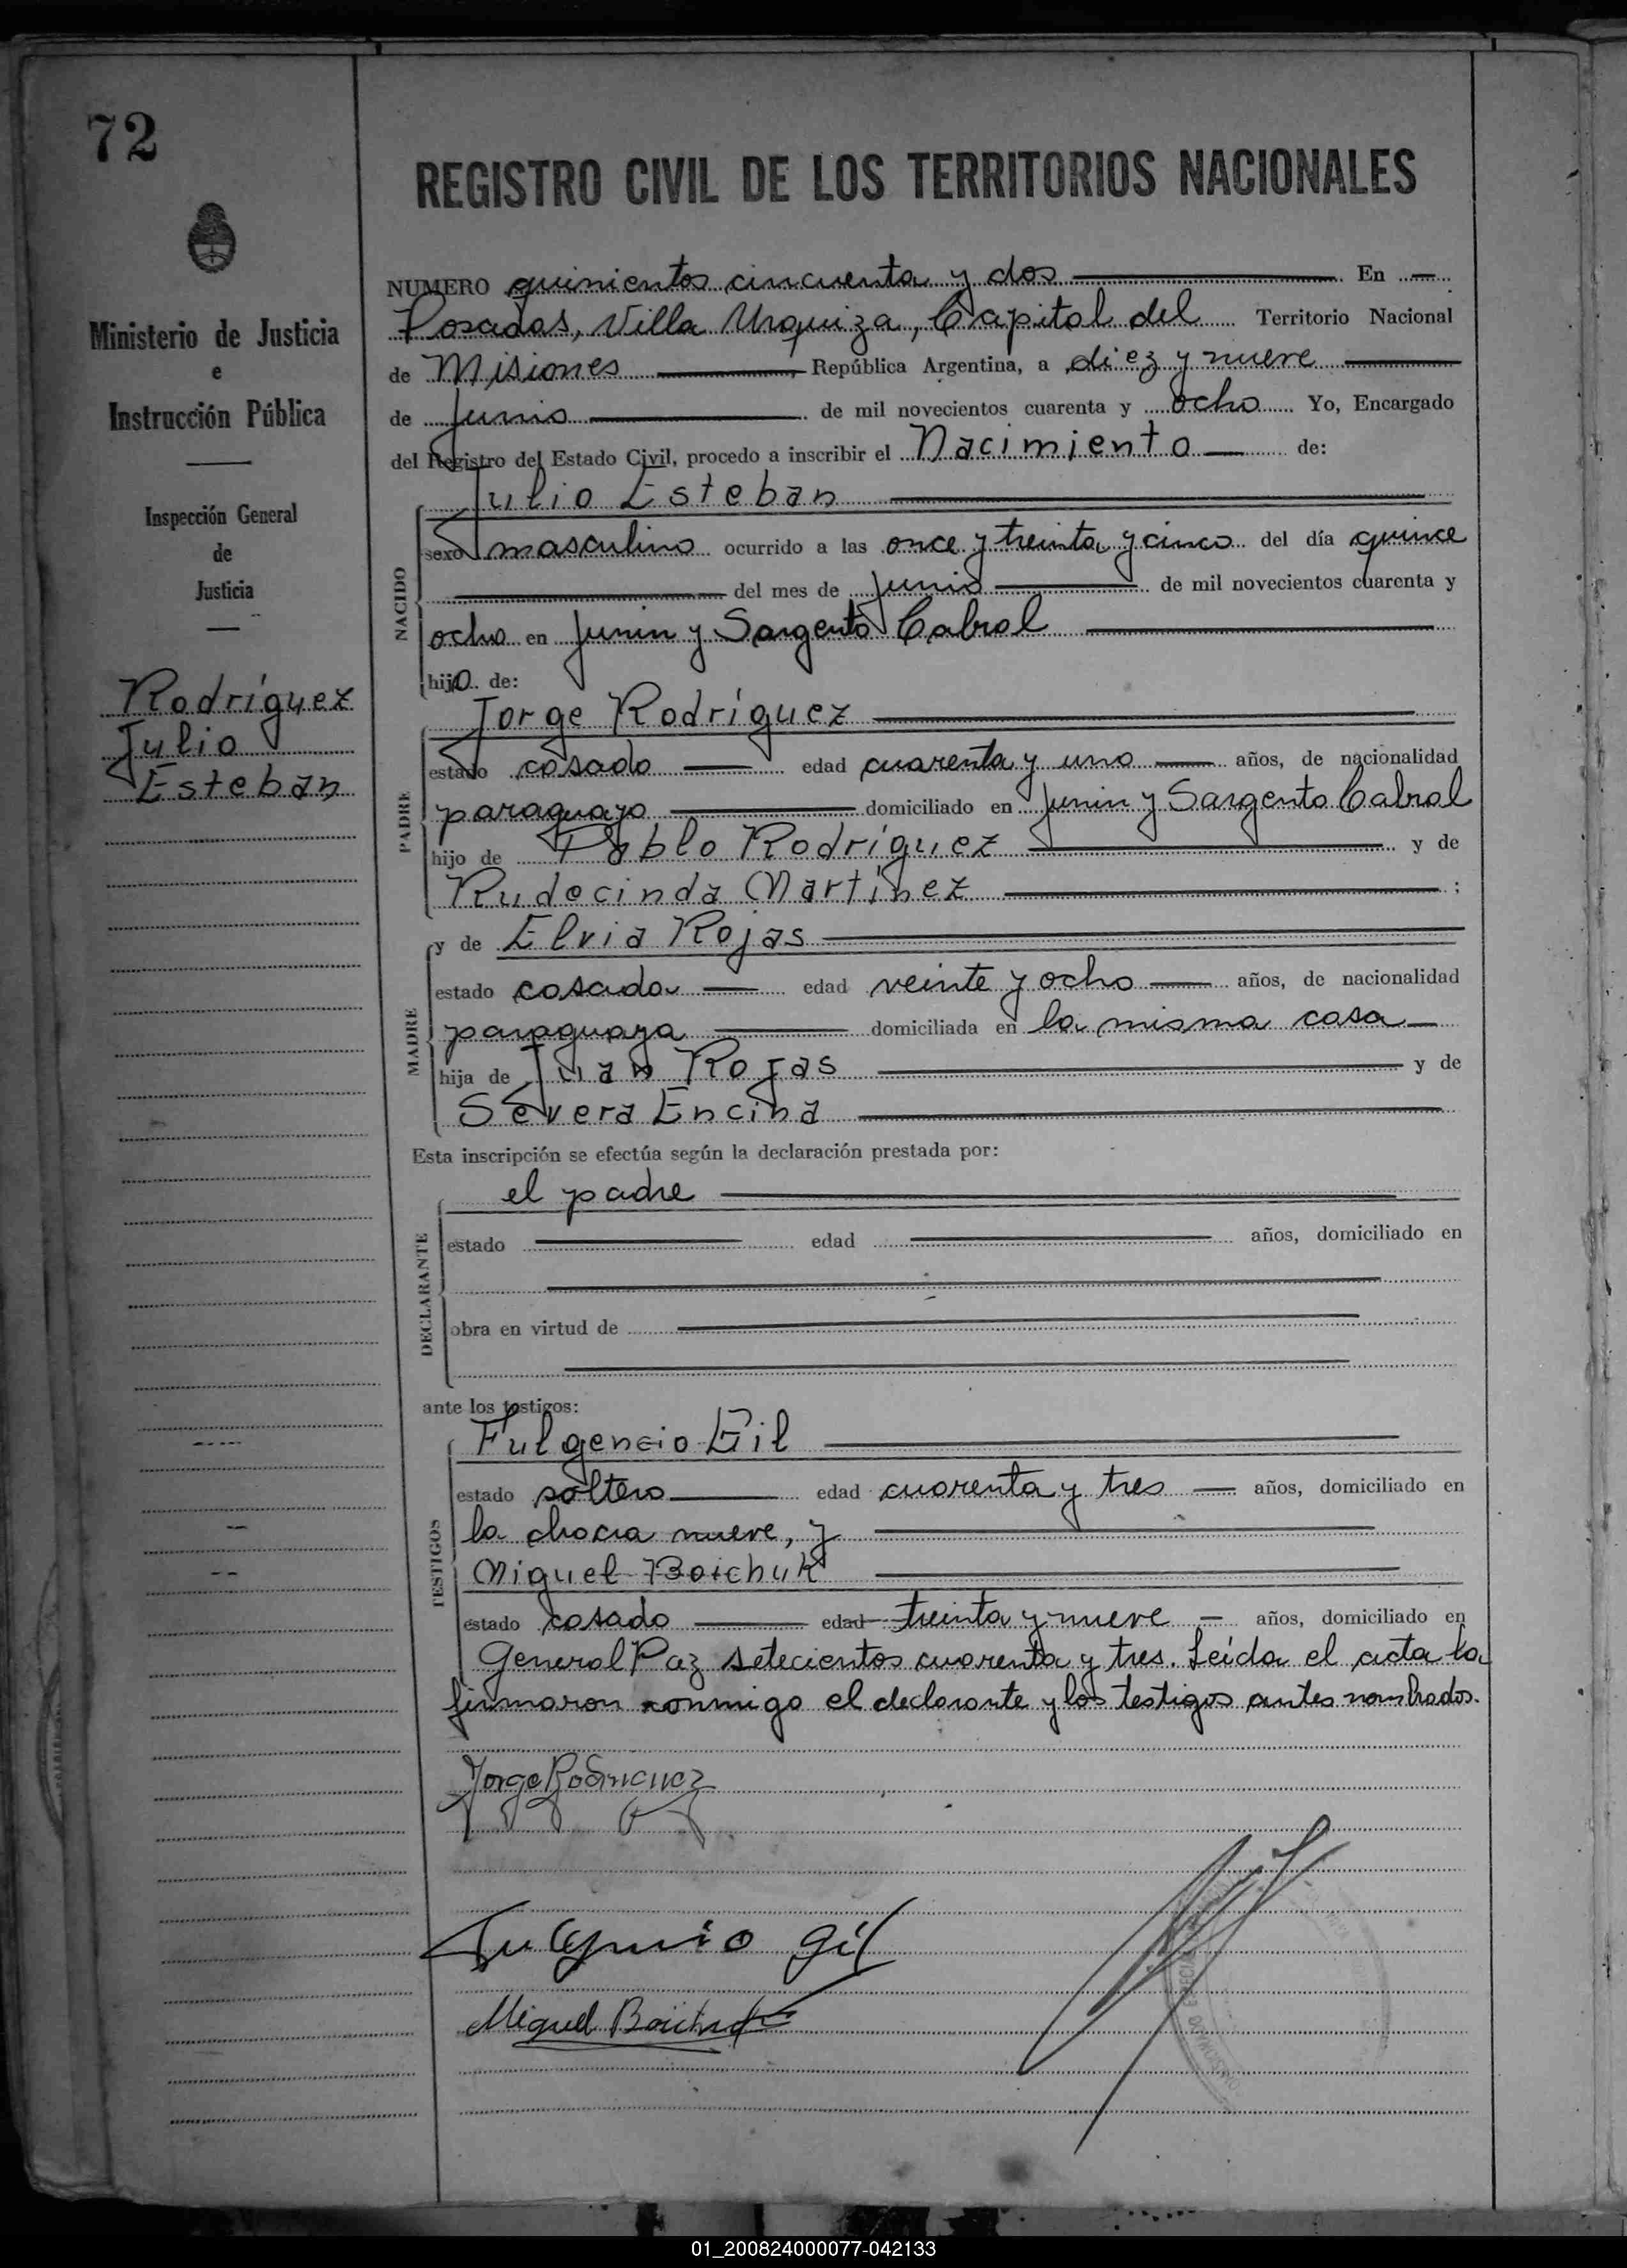 72
REGISTRO CIVIL DE LOS TERRITORIOS NACIONALES
Ministerio de Justicia
e
Instrucción Pública
Inspección General
de
Justicia
Rodríguez
Julio
Esteban
NUMERO quinientos cincuenta y dos En
Posadas, Villa Urquiza, Capital del Territorio Nacional
de Misiones, República Argentina, a diez y nueve
de Junio de mil novecientos cuarenta y ocho Yo, Encargado
del Registro del Estado Civil, procedo a inscribir el Nacimiento de:
Julio Esteban
NACIDO
sexo masculino ocurrido a las once y treinta y cinco del día quince
del mes de Junio de mil novecientos cuarenta y
ocho en Junin y Sargento Cabral
hijo de:
Jorge Rodríguez
PADRE
estado casado edad cuarenta y uno años, de nacionalidad
paraguayo domiciliado en Junin y Sargento Cabral
hijo de Pablo Rodríguez y de
Rudecinda Martínez ;
y de Elvia Rojas
MADRE
estado casada edad veinte y ocho años, de nacionalidad
paraguaya domiciliada en la misma casa
hija de Juan Rojas y de
Severa Encina
Esta inscripción se efectúa según la declaración prestada por:
el padre
DECLARANTE
estado edad años, domiciliado en
obra en virtud de
ante los testigos:
Fulgencio Gil
TESTIGOS
estado soltero edad cuarenta y tres años, domiciliado en
la chacra nueve, y
Miguel Boichuk
estado casado edad treinta y nueve años, domiciliado en
General Paz setecientos cuarenta y tres. Leída el acta la
firmaron conmigo el declarante y los testigos antes nombrados.
Jorge Rodriguez
Fulgencio Gil
Miguel Boichuk
01_200824000077-042133